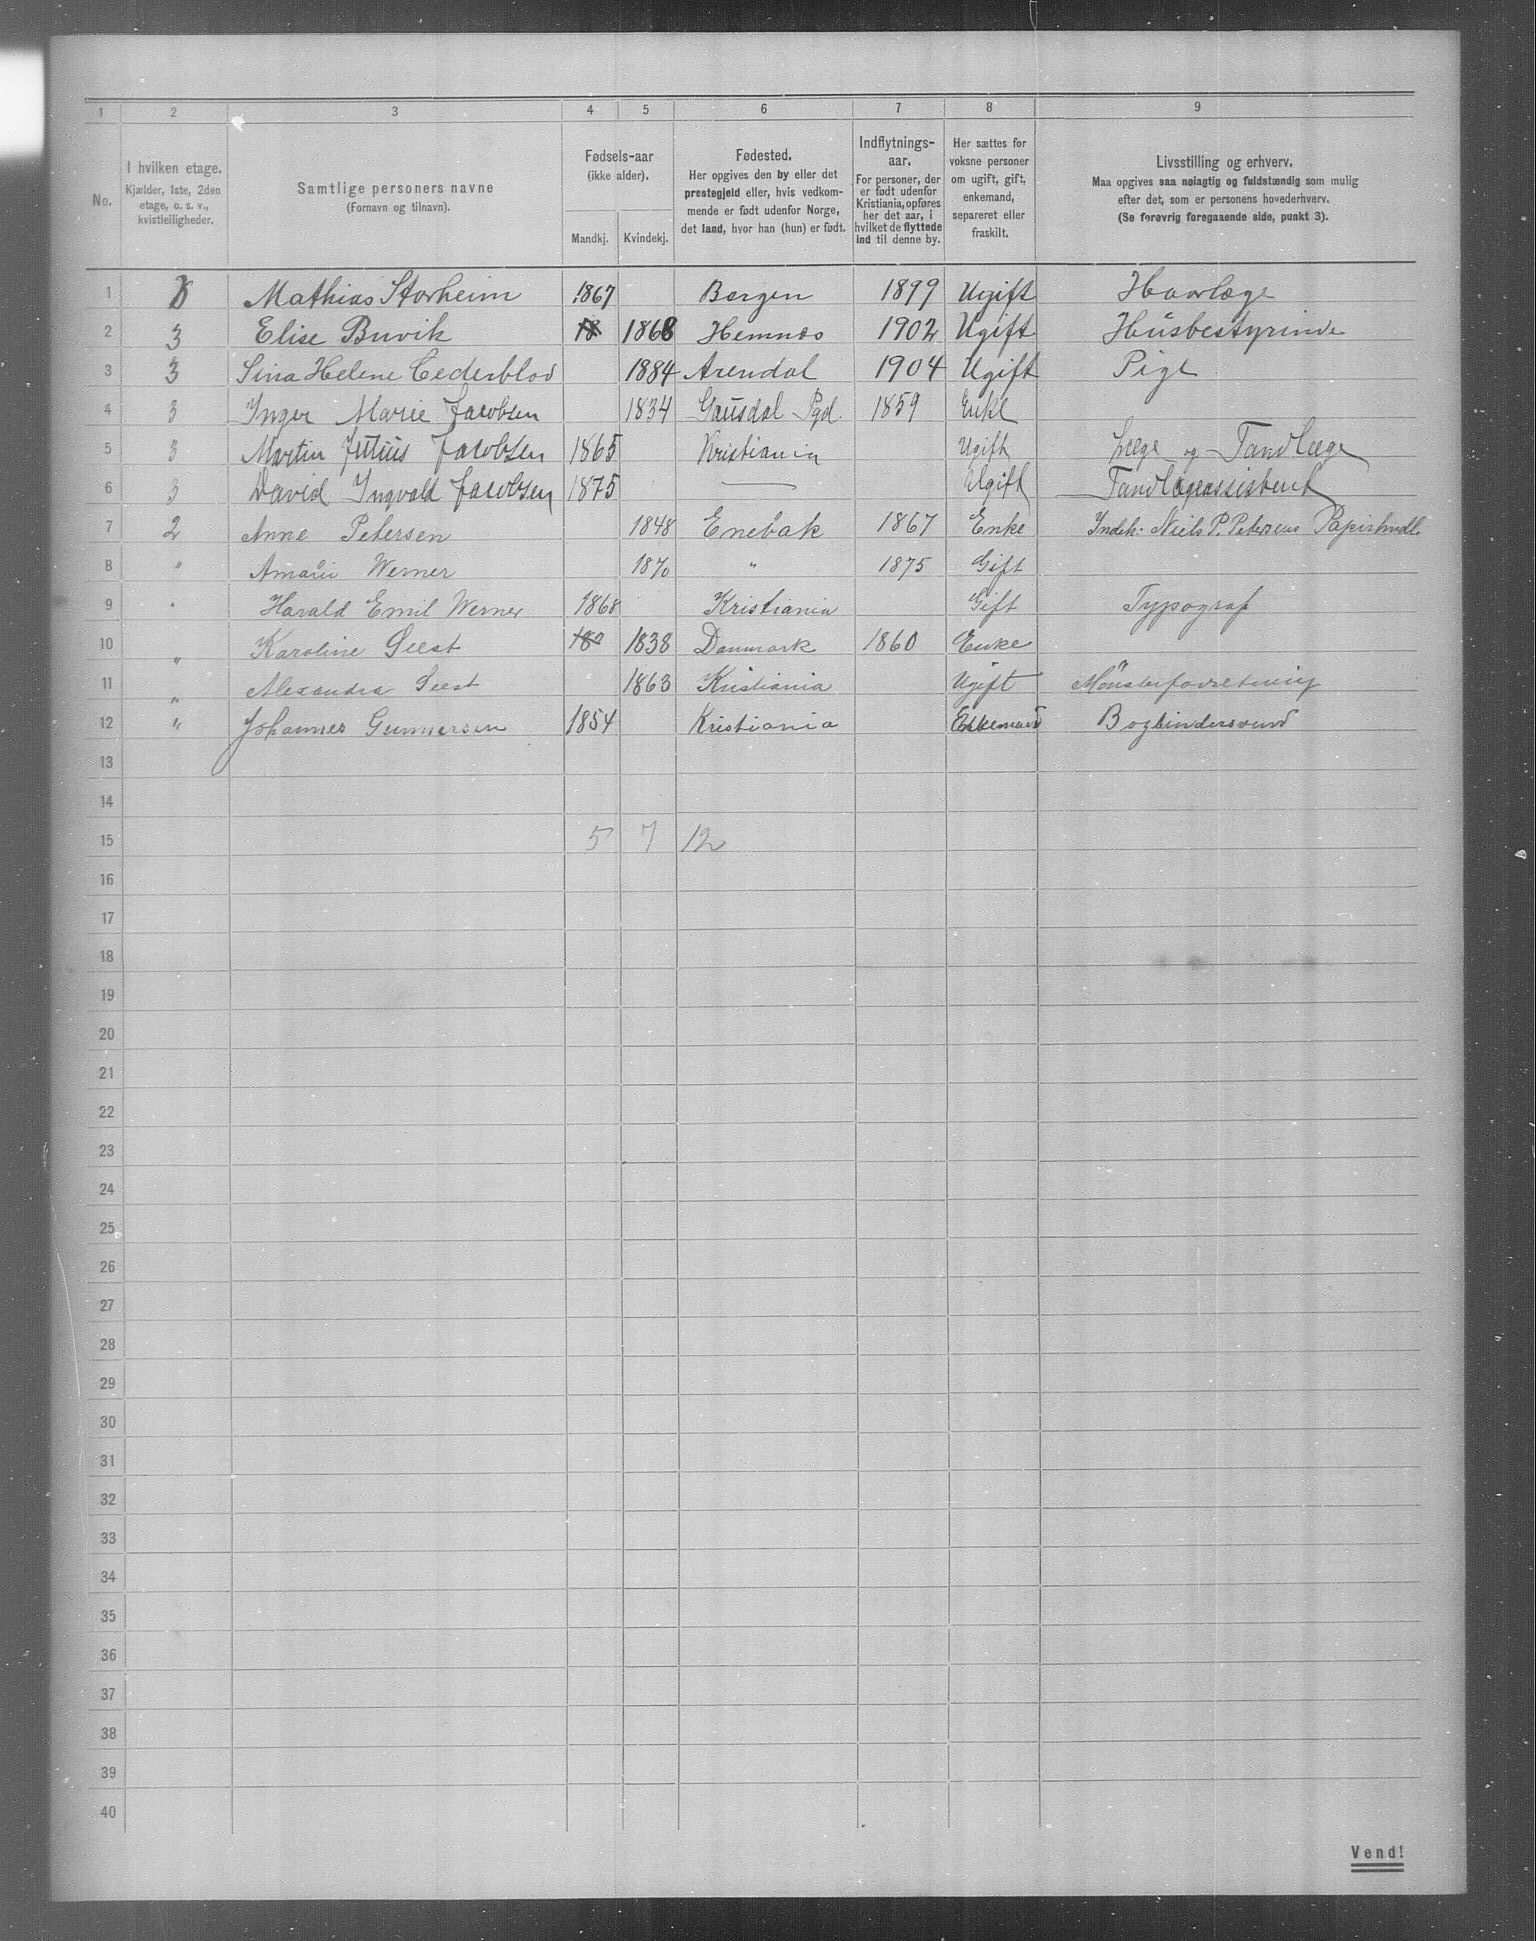 1 2 3 4 5 6 7 8 9
No.
I hvilken etage.
Kjælder, 1ste, 2den
etage, o. s. v.,
kvistleiligheder.
Samtlige personers navne
(Fornavn og tilnavn).
Fødsels-aar
(ikke alder).
Mandkj. Kvindekj.
Fødested.
Her opgives den by eller det
prestegjeld eller, hvis vedkom-
mende er født udenfor Norge,
det land, hvor han (hun) er født.
Indflytnings-
aar.
For personer, der
er født udenfor
Kristiania, opføres
her det aar, i
hvilket de flyttede
ind til denne by.
Her sættes for
voksne personer
om ugift, gift,
enkemand,
separeret eller
fraskilt.
Livsstilling og erhverv.
Maa opgives saa nøiagtig og fuldstændig som mulig
efter det, som er personens hovederhverv.
(Se forøvrig foregaaende side, punkt 3).
1 Mathias Storheim 1867 Bergen 1899 Ugift Haarlæge
2 3 Elise Buvik 18 1868 Hemnæs 1902 Ugift Husbestyrinde
3 3 Sina Helene Cederblod 1884 Arendal 1904 Ugift Pige
4 3 Inger Marie Jacobsen 1834 Gausdal Pgd. 1859 Enke
5 3 Martin Julius Jacobsen 1865 Kristiania Ugift Læge og Tandlæge
6 3 David Ingvald Jacobsen 1875 — Ugift Tandlægeassistent
7 2 Anne Petersen 1848 Enebak 1867 Enke Indeh: Niels P. Petersens Papirhndl.
8 " Werner 1870 " 1875 Gift
9 " Harald Emil Werner 1868 Kristiania Gift Typograf
10 " Karoline Seest 180 1838 Danmark 1860 Enke
11 " Alexandra Seest 1863 Kristiania Ugift Mønsterforretning
12 " Johannes Gunnarsen 1854 Kristiania Enkemand Bogbindersvend
13
14
15 5 7 12
16
17
18
19
20
21
22
23
24
25
26
27
28
29
30
31
32
33
34
35
36
37
38
39
40
Vend!